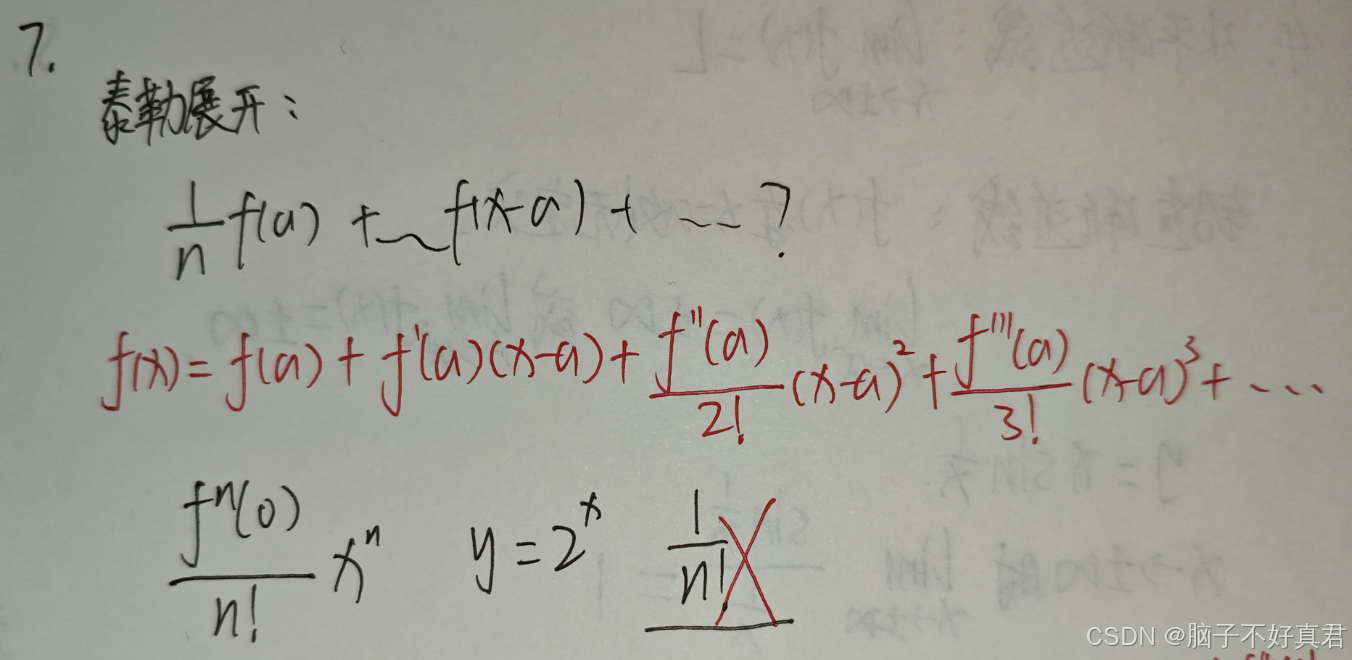 7.
泰勒展开:
1/n f(a) + ~ f(x-a) + ...?
f(x) = f(a) + f'(a)(x-a) + f''(a)/2! (x-a)² + f'''(a)/3! (x-a)³ + ...
fⁿ(0)/n! xⁿ y = 2ˣ 1/n!
CSDN @脑子不好真君